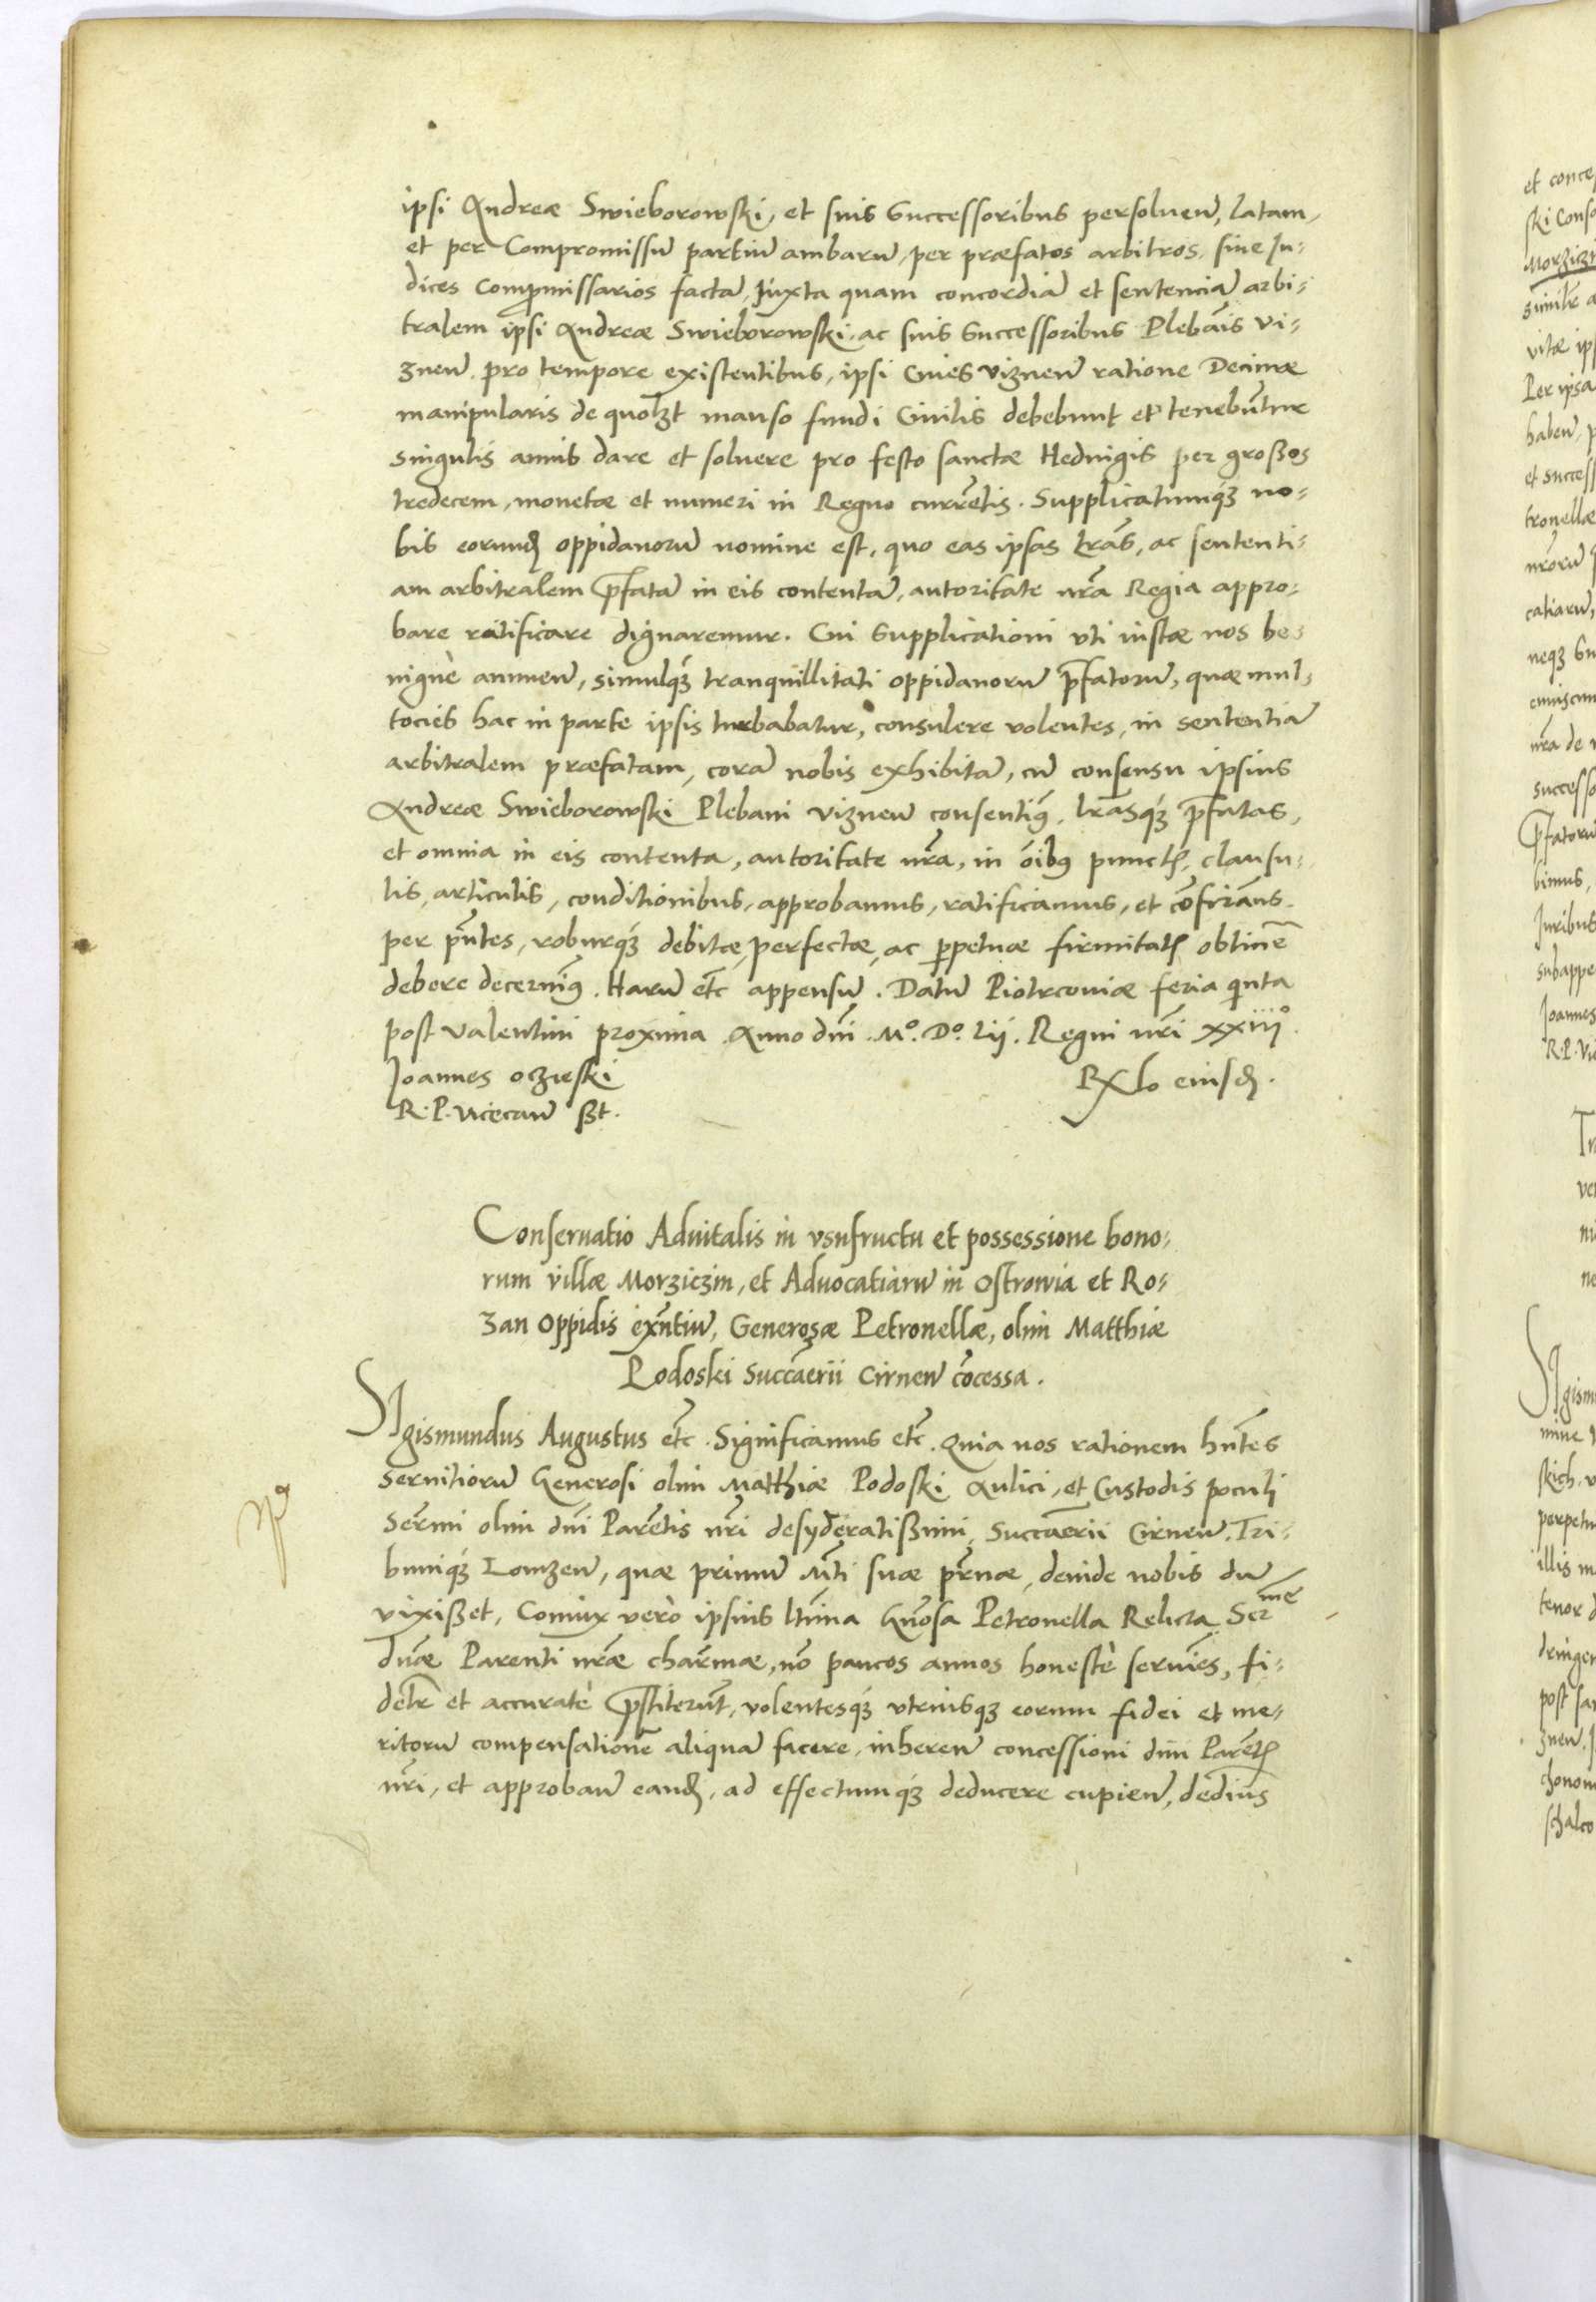 ipsi Andreæ Swieborowski, et suis Successoribus persoluen̄, latam,
et per Compromissū partiū ambarū, per præfatos arbitros, siue Ju-
dices Comp̄missarios factā, Juxta quam concordiā et sentenciā arbi-
tralem ipsi Andreæ Swieborowski, ac suis Successoribus Plebāis Vi-
znen̄ pro tempore existentibus, ipsi Ciues Viznen̄ ratione Decimæ
manipularis de quolzt manso fundi Ciuilis debebunt et tenebūtur
singulis annis dare et soluere pro festo sanctæ Heduigis per großos
tredecem, monetæ et numeri in Regno currētis. Supplicatumqꝫ no-
bis eorundꝫ oppidanorū nomine est, quo eas ipsas lr̄as, ac sententi-
am arbitralem p̄fatā in eis contentā, autoritate nr̄a Regia appro-
bare ratificare dignaremur. Cui Supplicationi vti iustæ nos be-
nignè annuen̄, simulqꝫ tranquillitati oppidanorū p̄fatorū, quæ mul-
tocies hac in parte ipsis turbabatur, consulere volentes, in sententiā
arbitralem præfatam, corā nobis exhibitā, cū consensu ipsius
Andreæ Swieborowski Plebani Viznen̄ consentim9, lr̄asqꝫ p̄fatas,
et omnia in eis contenta, autoritate nr̄a, in oībus punctꝭ, clausu-
lis, articulis, conditionibus, approbamus, ratificamus, et cōfirmāus
per pn̄tes, roburqꝫ debitæ, perfectæ, ac p̱petuæ firmitatꝭ obtinē
debere decernim9. Harū etc̄ appensū. Datū Piotrcouiæ feria qinta
post Valentini proxima Anno dn̄i M°. D°. Lij. Regni nr̄i xxiij°.
Joannes Oczieski
R. P. Vicecan̄ ßt.
Rx̄lo eiusdꝫ.
Conseruatio Aduitalis in vsufructu et possessione bono-
rum villæ Morziczin, et Aduocatiarū in Ostrowia et Ro-
zan Oppidis exn̄tiū, Generosæ Petronellæ, olim Matthiæ
Podoski Succāerii Cirnen̄ cōcessa.
Sigismundus Augustus etc̄. Significamus etc̄. Quia nos rationem hn̄tes
seruitiorū Generosi olim Matthiæ Podoski Aulici, et Custodis poculi
Serm̄i olim dn̄i Parētis nr̄i desyderatißimi, Succāerii Cirnen̄. Tri-
buniqꝫ Lomzen̄, quæ primū M̄ti suæ p̄rnæ, deinde nobis dū
vixißet, Coniux verò ipsius ltīma Gn̄osa Petronella Relicta Ser^mæ
dn̄æ Parenti nr̄æ char̄mæ, nō paucos annos honestè seruiēs, fi-
delr̄ et accuratè p̄stiterūt, volentesqꝫ vtriusqꝫ eorum fidei et me-
ritorū compensationē aliquā facere, inheren̄ concessioni dn̄i Parētꝭ
nr̄i, et approban̄ eandꝫ, ad effectumqꝫ deducere cupien̄, dedim̄us
et conce
ski Conso
Morzicz
similr̄ a
vitæ ips
Per ipsa
haben̄, p
et success
tronellæ
nr̄orū
catiarū,
neqꝫ Su
nr̄a de
successo
p̄fatorū
bimus,
Juribus
subappe
Joannes
R. P. Vi
ne
gism
skich
perpetu
illis m
tenor d
dringen
post sa
znen̄
chonom
schalco